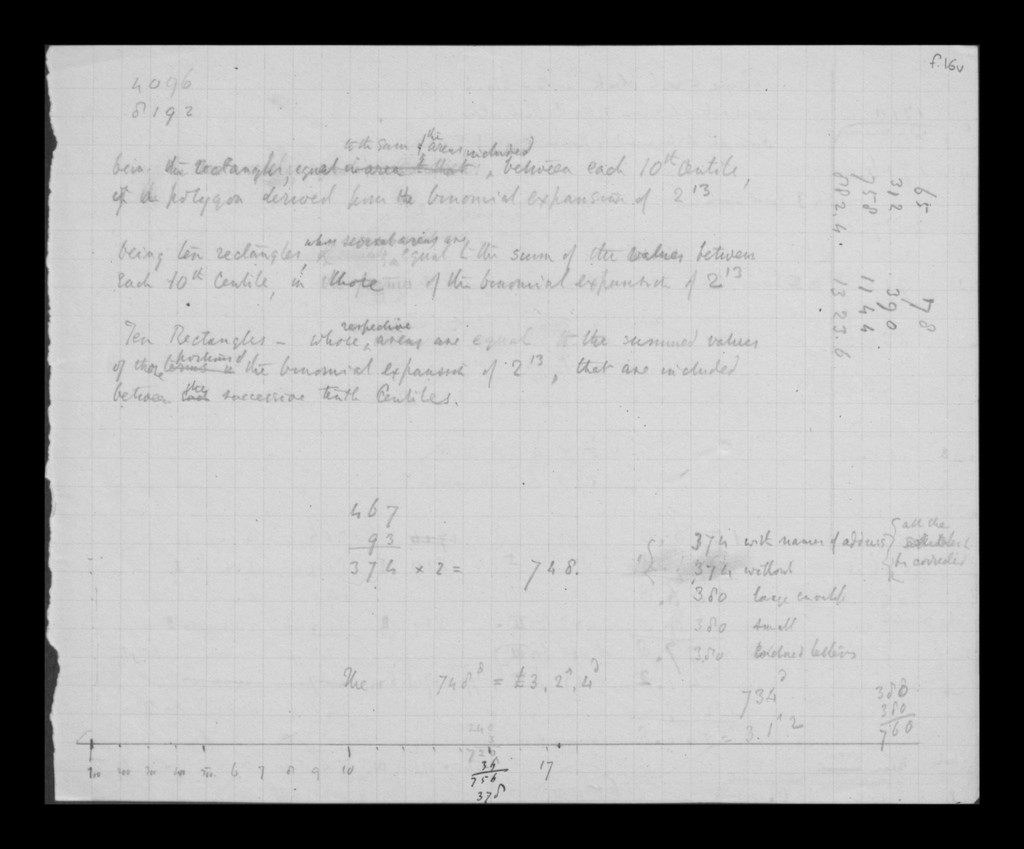 f.16v
4096
8192
to the sum of the areas included
being the rectangles, equal in area to that, between each 10th Centile,
of a polygon derived from the binomial expansion of 2^13
whose several areas are
being ten rectangles, equal to the sum of the values between
each 10th Centile, in those of the binomial expansion of 2^13
respective
Ten Rectangles – whose areas are equal to the summed values
portions of
of those the binomial expansion of 2^13, that are included
the
between each successive tenth Centiles.
65 78
312 390
758 1144
882.4. 1323.6
467
93
374 × 2 = 748.
374 with names & address
all the
be corrected
374 without
380 large
380 small
380 letters
The 748d = £3, 2s, 4d
734d
= 3.1s 2
380
380
760
240
3
720
36
756
378
1 2 3 4 5 6 7 8 9 10 17